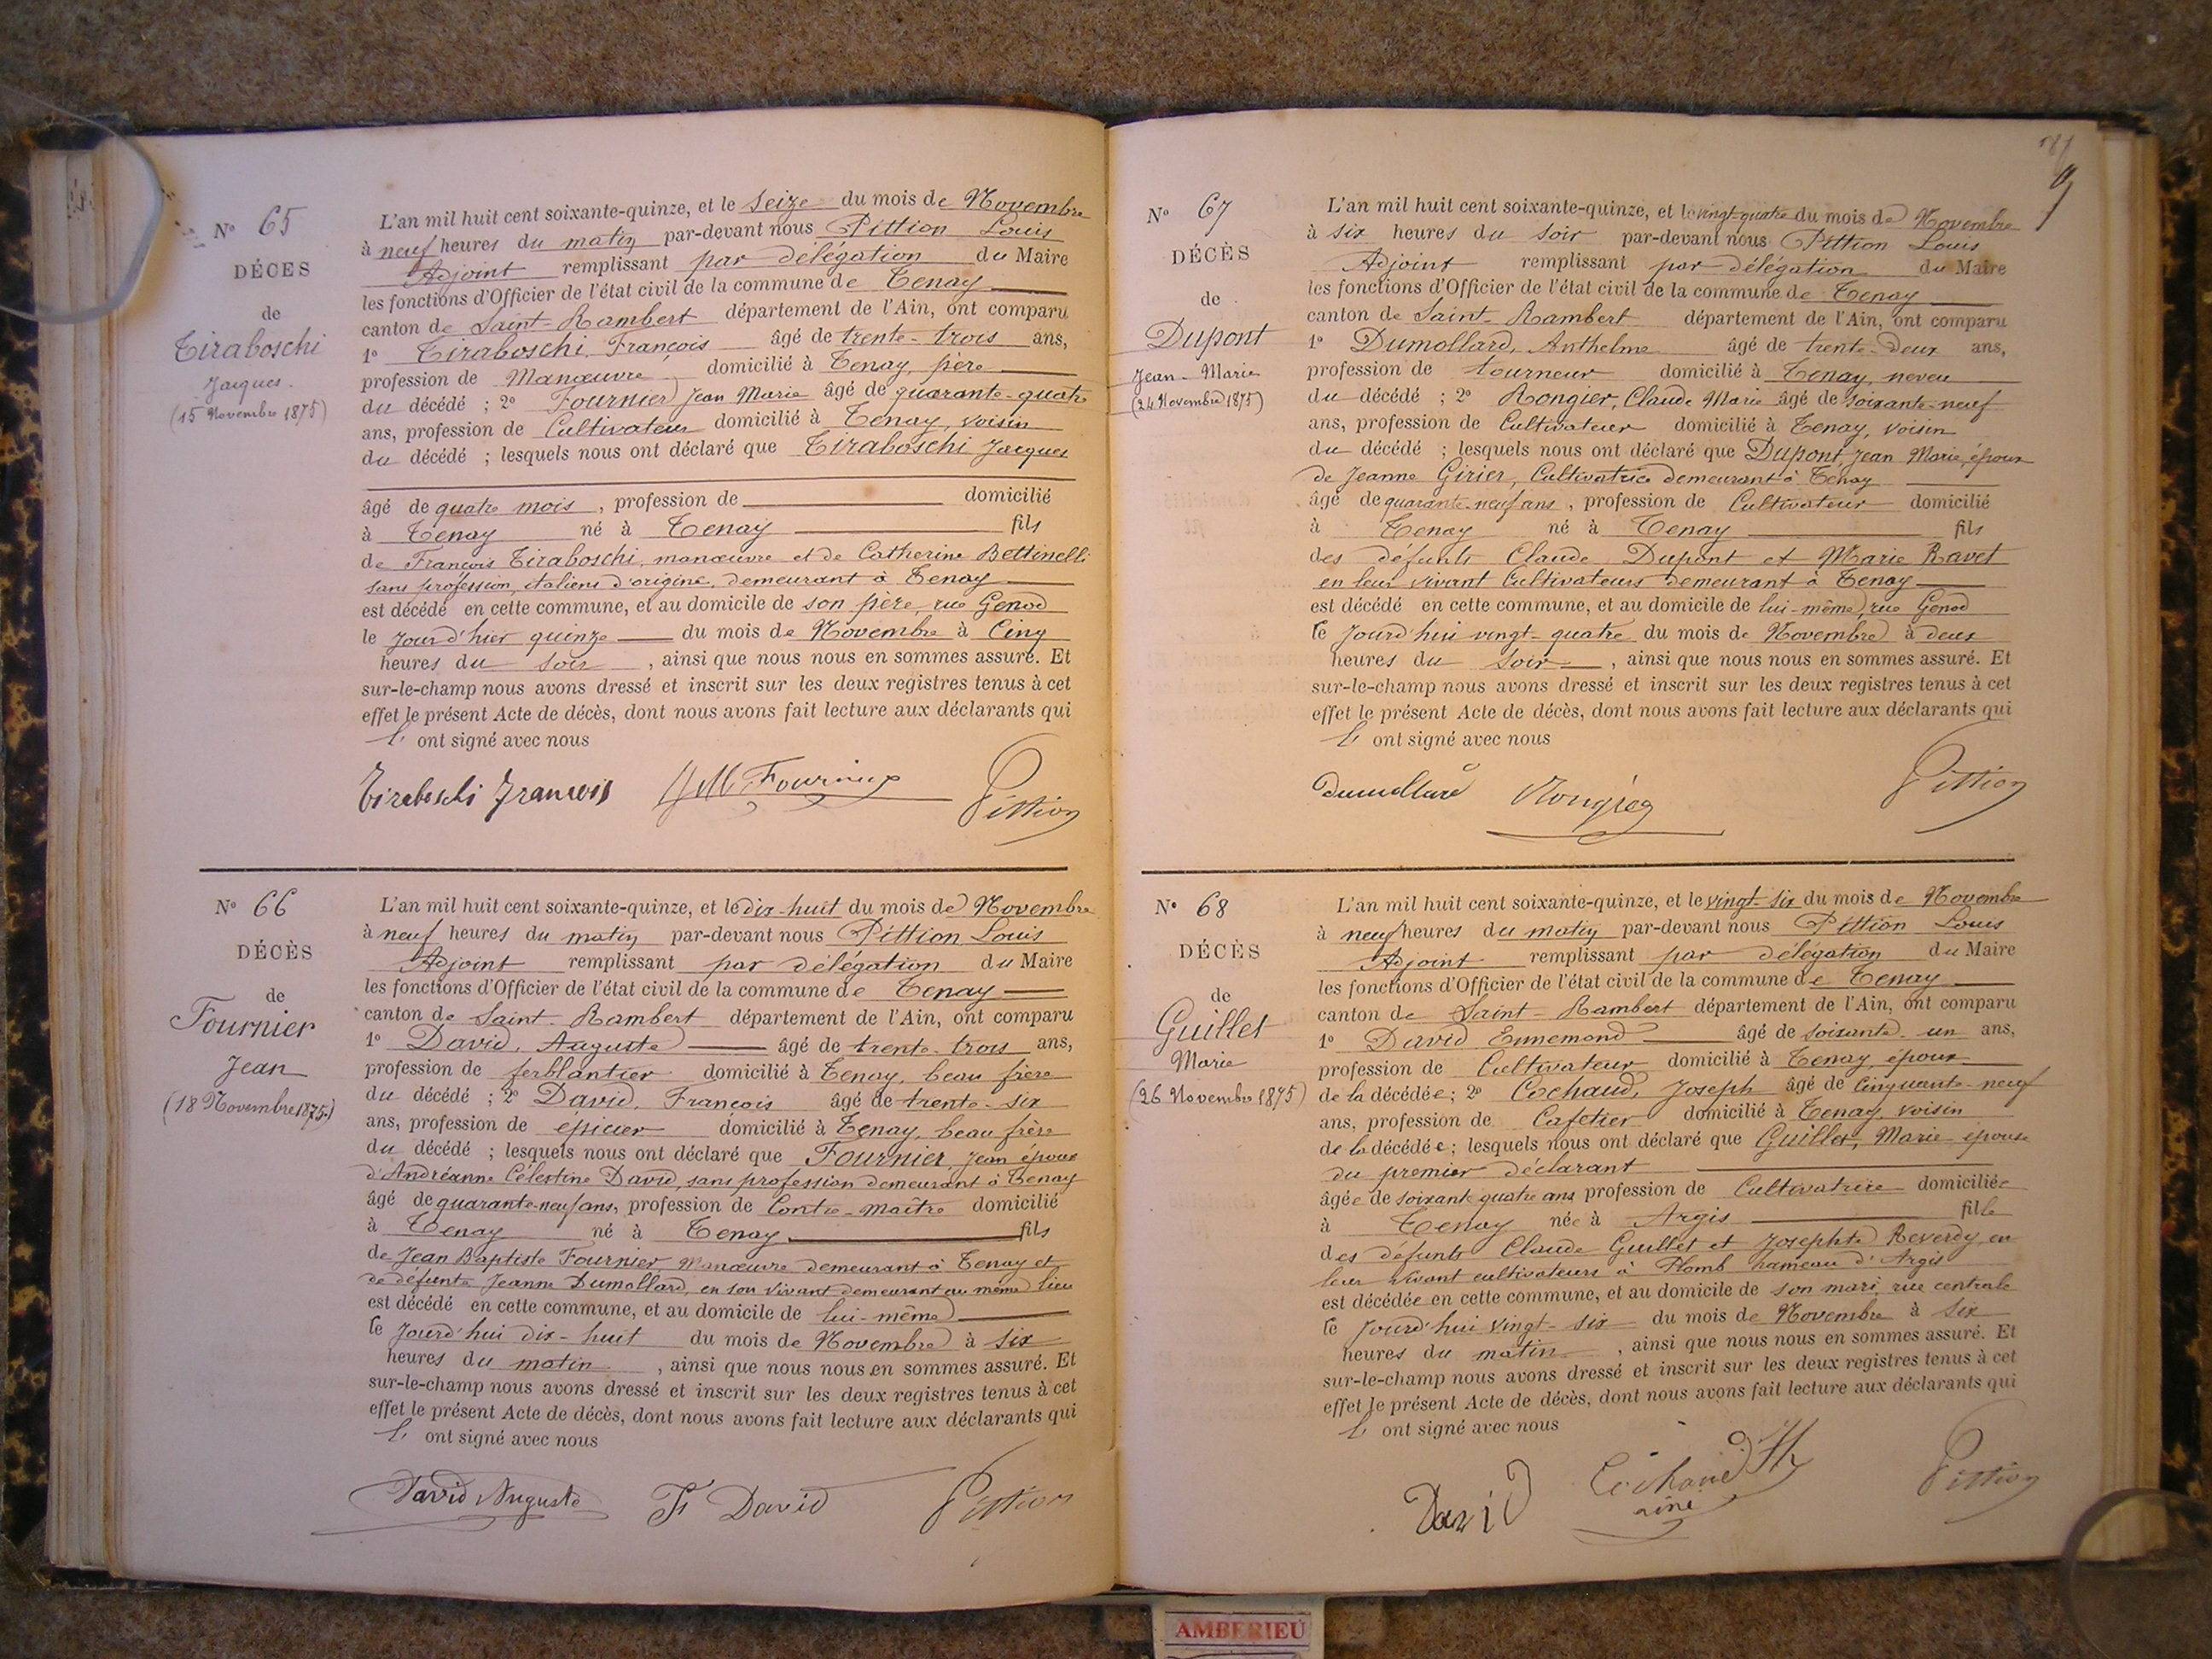 N° 65
DÉCES
de
Tiraboschi
Jacques.
(15 Novembre 1875)
L'an mil huit cent soixante-quinze, et le seize du mois de Novembre
à neuf heures du matin par-devant nous Pittion Louis
Adjoint remplissant par délégation du Maire
les fonctions d'Officier de l'état civil de la commune de Tenay
canton de Saint-Rambert département de l'Ain, ont comparu
1° Tiraboschi, François âgé de trente-trois ans,
profession de Manœuvre domicilié à Tenay, père
du décédé ; 2° Fournier Jean Marie âgé de quarante-quatre
ans, profession de Cultivateur domicilié à Tenay, voisin
du décédé ; lesquels nous ont déclaré que Tiraboschi Jacques
âgé de quatre mois, profession de domicilié
à Tenay né à Tenay fils
de François Tiraboschi, manœuvre et de Catherine Bettinelli
sans profession, italiens d'origine, demeurant à Tenay
est décédé en cette commune, et au domicile de son père, rue Genod
le jourd'hier quinze du mois de Novembre à Cinq
heures du soir, ainsi que nous nous en sommes assuré. Et
sur-le-champ nous avons dressé et inscrit sur les deux registres tenus à cet
effet le présent Acte de décès, dont nous avons fait lecture aux déclarants qui
l' ont signé avec nous
Tiraboschi François JM Fournier Pittion
N° 66
DÉCÈS
de
Fournier
Jean
(18 Novembre 1875)
L'an mil huit cent soixante-quinze, et le dix-huit du mois de Novembre
à neuf heures du matin par-devant nous Pittion, Louis
Adjoint remplissant par délégation du Maire
les fonctions d'Officier de l'état civil de la commune de Tenay
canton de Saint-Rambert département de l'Ain, ont comparu
1° David, Auguste âgé de trente-trois ans,
profession de ferblantier domicilié à Tenay, beau frère
du décédé ; 2° David, François âgé de trente-six
ans, profession de épicier domicilié à Tenay, beau frère
du décédé ; lesquels nous ont déclaré que Fournier, Jean époux
d'Andréanne Célestine David, sans profession demeurant à Tenay
âgé de quarante-neuf ans, profession de Contre-maître domicilié
à Tenay né à Tenay fils
de Jean Baptiste Fournier, Manœuvre demeurant à Tenay et
de défunte Jeanne Dumollard, en son vivant demeurant au même lieu
est décédé en cette commune, et au domicile de lui-même
le jourd'hui dix-huit du mois de Novembre à six
heures du matin, ainsi que nous nous en sommes assuré. Et
sur-le-champ nous avons dressé et inscrit sur les deux registres tenus à cet
effet le présent Acte de décès, dont nous avons fait lecture aux déclarants qui
l' ont signé avec nous
David Auguste F David Pittion
N° 67
DÉCÈS
de
Dupont
Jean-Marie
(24 Novembre 1875)
L'an mil huit cent soixante-quinze, et le vingt-quatre du mois de Novembre
à six heures du soir par-devant nous Pittion Louis
Adjoint remplissant par délégation du Maire
les fonctions d'Officier de l'état civil de la commune de Tenay
canton de Saint-Rambert département de l'Ain, ont comparu
1° Dumollard, Anthelme âgé de trente-deux ans,
profession de tourneur domicilié à Tenay, neveu
du décédé ; 2° Rongier, Claude Marie âgé de soixante-neuf
ans, profession de Cultivateur domicilié à Tenay, voisin
du décédé ; lesquels nous ont déclaré que Dupont Jean Marie, époux
de Jeanne Girier, Cultivatrice demeurant à Tenay
âgé de quarante-neuf ans, profession de Cultivateur domicilié
à Tenay né à Tenay fils
des défunts Claude Dupont et Marie Ravet
en leur vivant Cultivateurs demeurant à Tenay
est décédé en cette commune, et au domicile de lui-même, rue Genod
le jourd'hui vingt-quatre du mois de Novembre à deux
heures du soir, ainsi que nous nous en sommes assuré. Et
sur-le-champ nous avons dressé et inscrit sur les deux registres tenus à cet
effet le présent Acte de décès, dont nous avons fait lecture aux déclarants qui
l' ont signé avec nous
Dumollard Rongier Pittion
N° 68
DÉCÈS
de
Guillet
Marie
(26 Novembre 1875)
L'an mil huit cent soixante-quinze, et le vingt-six du mois de Novembre
à neuf heures du matin par-devant nous Pittion Louis
Adjoint remplissant par délégation du Maire
les fonctions d'Officier de l'état civil de la commune de Tenay
canton de Saint-Rambert département de l'Ain, ont comparu
1° David Ennemond âgé de soixante-un ans,
profession de Cultivateur domicilié à Tenay, époux
de la décédée ; 2° Cochaud, Joseph âgé de Cinquante-neuf
ans, profession de Cafetier domicilié à Tenay, voisin
de la décédée ; lesquels nous ont déclaré que Guillet, Marie épouse
du premier déclarant
âgée de soixante quatre ans profession de Cultivatrice domiciliée
à Tenay née à Argis fille
des défunts Claude Guillet et Josephte Reverdy en
leur vivant cultivateurs à Plomb hameau d'Argis
est décédée en cette commune, et au domicile de son mari, rue centrale
le jourd'hui vingt-six du mois de Novembre à six
heures du matin, ainsi que nous nous en sommes assuré. Et
sur-le-champ nous avons dressé et inscrit sur les deux registres tenus à cet
effet le présent Acte de décès, dont nous avons fait lecture aux déclarants qui
l' ont signé avec nous
David Cochaud aîné Pittion
AMBERIEU